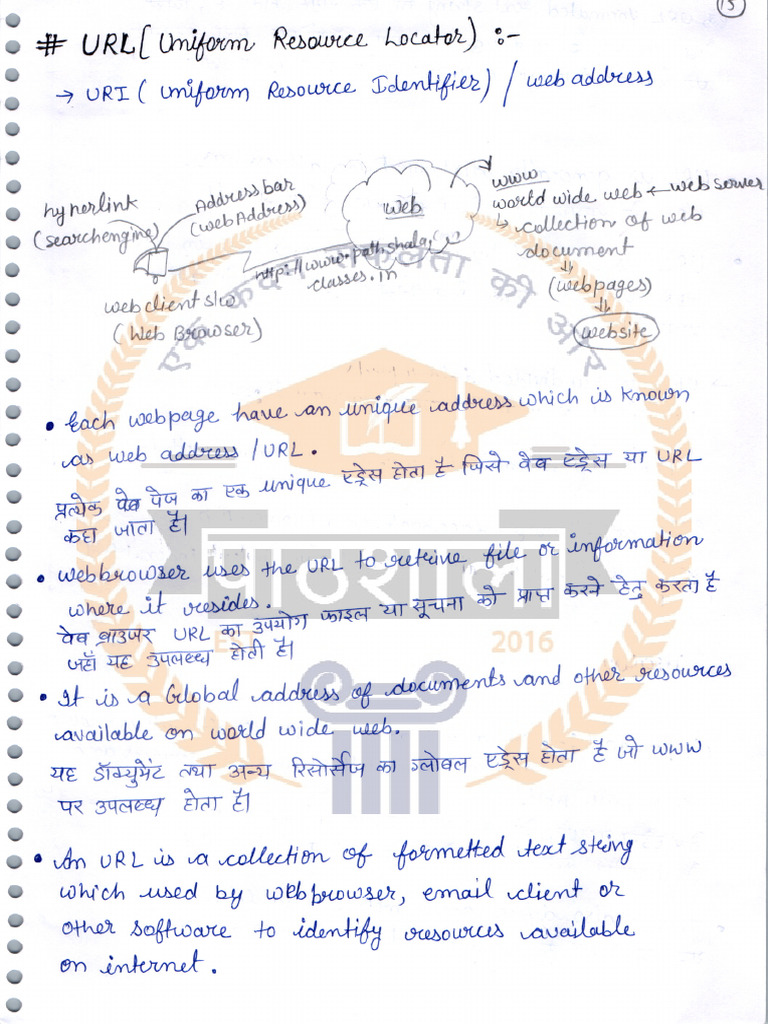 15
# URL ( Uniform Resource Locator) :-
→ URI ( Uniform Resource Identifier) / web address
hyperlink
(searchengine)
Address bar
(web Address)
web
www
world wide web ← web server
↳ collection of web
document
(webpages)
website
http://www.pathshala
classes.in
web client s/w
( Web Browser)
एक कदम सफलता की ओर
• Each webpage have an unique address which is known
as web address /URL.
प्रत्येक वेब पेज का एक unique एड्रेस होता है जिसे वेब एड्रेस या URL
कहा जाता है।
पाठशाला
• webbrowser uses the URL to retrive file or information
where it resides.
वेब ब्राउजर URL का उपयोग फाइल या सूचना को प्राप्त करने हेतु करता है
जहाँ यह उपलब्ध होती है।
EST 2016
• It is a Global address of documents and other resources
available on world wide web.
यह डॉक्युमेंट तथा अन्य रिसोर्सेज का ग्लोबल एड्रेस होता है जो www
पर उपलब्ध होता है।
• An URL is a collection of formetted text string
which used by webbrowser, email client or
other software to identify resources available
on internet.